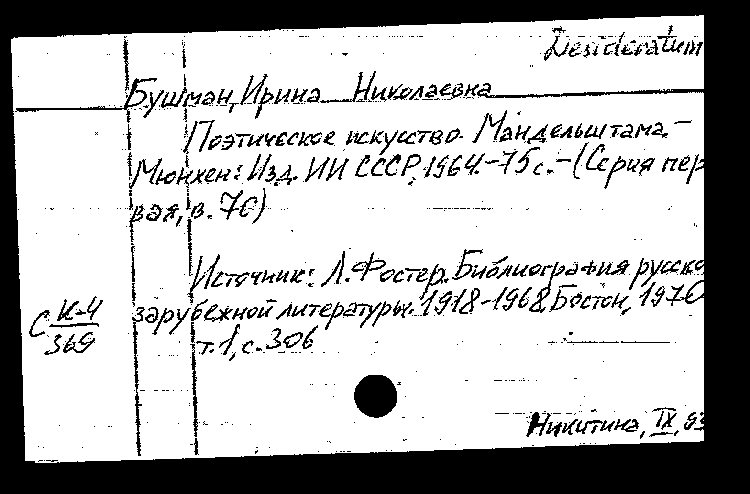 Desideratum
Бушман, Ирина Николаевна
Поэтическое искусство Мандельштама.-
Мюнхен: Изд. ИИ СССР, 1964.-75с.-(Серия пер
вая, в. 70)
Источник: Л. Фостер. Библиография русско
зарубежной литературы. 1918-1968, Бостон, 1970
т.1, с. 306
С К-4
369
Никитина, IX, 93